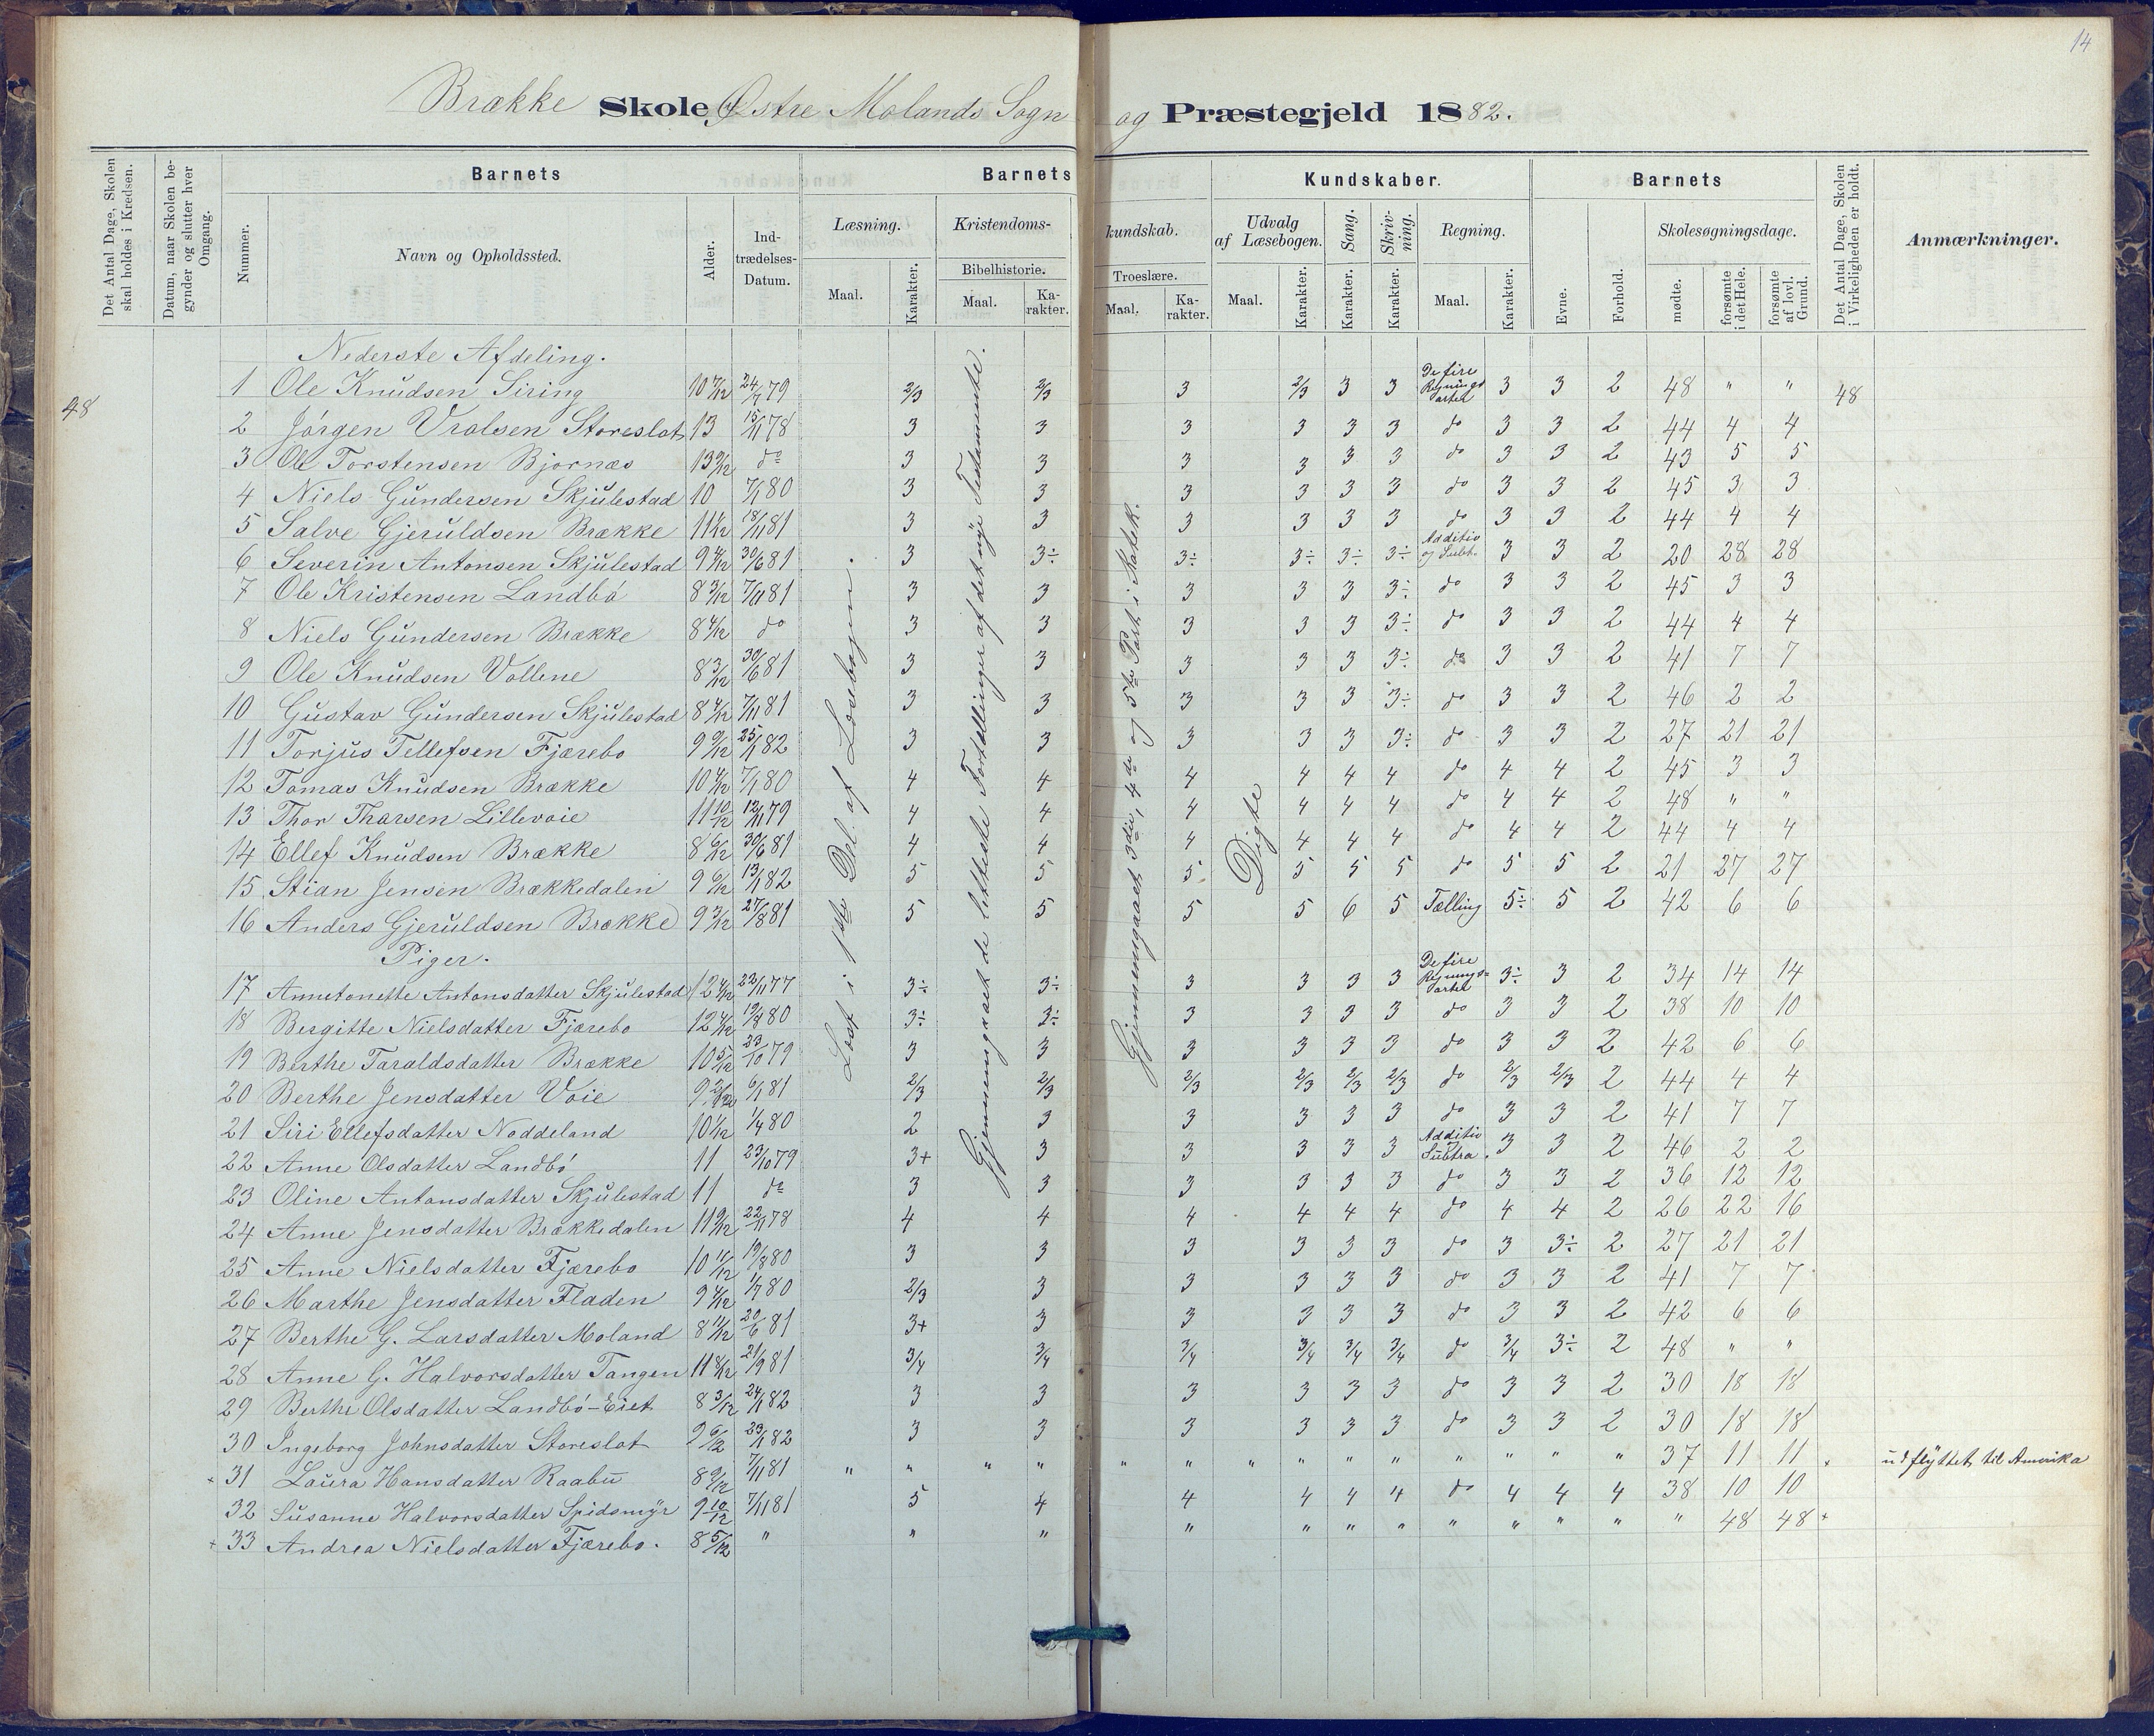 14
Brække Skole, Østre Molands Sogn og Præstegjeld 1882.
Det Antal Dage, Skolen skal holdes i Kredsen.
Datum, naar Skolen begynder og slutter hver Omgang.
Barnets
Nummer.
Navn og Opholdssted.
Alder.
Indtrædelses-Datum.
Barnets Kundskaber.
Læsning.
Maal. Karakter.
Kristendomskundskab.
Bibelhistorie.
Maal. Karakter.
Troeslære.
Maal. Karakter.
Udvalg af Læsebogen.
Maal. Karakter.
Sang. Karakter.
Skrivning. Karakter.
Regning.
Maal. Karakter.
Barnets
Evne. Forhold.
Skolesøgningsdage.
mødte. forsømte i det Hele. forsømte af lovl. Grund.
Det Antal Dage, Skolen i Virkeligheden er holdt.
Anmærkninger.
48
Læst i 1ste Del af Læsebogen.
Gjennemgaaet de letteste Fortællinger af det nye Testamente.
Gjennemgaaet 3die, 4de og 5te Part i Katek.
Digte
Nederste Afdeling.
1 Ole Knudsen Siring 10 7/12 24/7 79 2/3 2/3 3 2/3 3 3 De fire Regningsarter 3 3 2 48 " " 48
2 Jórgen Vrolsen Storeslot 13 15/11 78 3 3 3 3 3 3 do 3 3 2 44 4 4
3 Ole Torstensen Bjornæs 13 9/12 do 3 3 3 3 3 3 do 3 3 2 43 5 5
4 Niels Gundersen Skjulestad 10 7/1 80 3 3 3 3 3 3 do 3 3 2 45 3 3
5 Salve Gjeruldsen Brække 11 1/12 18/11 81 3 3 3 3 3 3 do 3 3 2 44 4 4
6 Severin Antonsen Skjulestad 9 4/12 30/6 81 3 3÷ 3÷ 3÷ 3÷ 3÷ Additio og Subt. 3 3 2 20 28 28
7 Ole Kristensen Landbó 8 3/12 7/11 81 3 3 3 3 3 3÷ do 3 3 2 45 3 3
8 Niels Gundersen Brække 8 4/12 do 3 3 3 3 3 3÷ do 3 3 2 44 4 4
9 Ole Knudsen Vollene 8 3/12 30/6 81 3 3 3 3 3 3÷ do 3 3 2 41 7 7
10 Gustav Gundersen Skjulestad 8 4/12 7/11 81 3 3 3 3 3 3÷ do 3 3 2 46 2 2
11 Torjus Tellefsen Fjærebo 9 9/12 25/1 82 3 3 3 3 3 3÷ do 3 3 2 27 21 21
12 Tomas Knudsen Brække 10 4/12 7/1 80 4 4 4 4 4 4 do 4 4 2 45 3 3
13 Thor Tharsen Lillevoie 11 10/12 12/11 79 4 4 4 4 4 4 do 4 4 2 48 " "
14 Ellef Knudsen Brække 8 6/12 30/6 81 4 4 4 4 4 4 do 4 4 2 44 4 4
15 Stian Jensen Brækkedalen 9 6/12 13/1 82 5 5 5 5 5 5 do 5 5 2 21 27 27
16 Anders Gjeruldsen Brække 9 3/12 27/8 81 5 5 5 5 6 5 Tælling 5÷ 5 2 42 6 6
Piger.
17 Annetonette Antonsdatter Skjulestad 12 4/12 22/11 77 3÷ 3÷ 3 3 3 3 De fire Regningsarter 3÷ 3 2 34 14 14
18 Bergitte Nielsdatter Fjærebo 12 4/12 19/8 80 3÷ 3÷ 3 3 3 3 do 3 3 2 38 10 10
19 Berthe Taraldsdatter Brække 10 5/12 23/10 79 3 3 3 3 3 3 do 3 3 2 42 6 6
20 Berthe Jensdatter Voie 9 6/1 81 2/3 2/3 2/3 2/3 2/3 2/3 do 2/3 2/3 2 44 4 4
21 Siri Ellefsdatter Noddeland 10 1/12 1/4 80 2 3 3 3 3 3 do 3 3 2 41 7 7
22 Anne Olsdatter Landbó 11 23/10 79 3+ 3 3 3 3 3 Additio Subtra. 3 3 2 46 2 2
23 Oline Antonsdatter Skjulestad 11 do 3 3 3 3 3 3 do 3 3 2 36 12 12
24 Anne Jensdatter Brækkedalen 11 9/12 22/11 78 4 4 4 4 4 4 do 4 4 2 26 22 16
25 Anne Nielsdatter Fjærebo 10 11/12 19/8 80 3 3 3 3 3 3 do 3 3÷ 2 27 21 21
26 Marthe Jensdatter Fladen 9 4/12 1/7 80 2/3 3 3 3 3 3 do 3 3 2 41 7 7
27 Berthe G. Larsdatter Moland 8 11/12 20/6 81 3+ 3 3 3 3 3 do 3 3 2 42 6 6
28 Anne G. Halvorsdatter Tangen 11 8/12 21/9 81 3/4 3/4 3/4 3/4 3/4 3/4 do 3/4 3÷ 2 48 " "
29 Berthe Olsdatter Landbó-Eiet 8 3/12 24/1 82 3 3 3 3 3 3 do 3 3 2 30 18 18
30 Ingeborg Johnsdatter Storeslot 9 6/12 23/1 82 3 3 3 3 3 3 do 3 3 2 30 18 18
+ 31 Laura Hansdatter Raabu 8 9/12 7/11 81 " " " " " " " " " " " " " " 37 11 11 + udflyttet til Amerika
32 Susanne Halvorsdatter Spidsmyr 9 10/12 7/11 81 5 4 4 4 4 4 do 4 4 4 38 10 10
+ 33 Andrea Nielsdatter Fjærebo. 8 5/12 " " " " " " " " " " " " 48 48 +